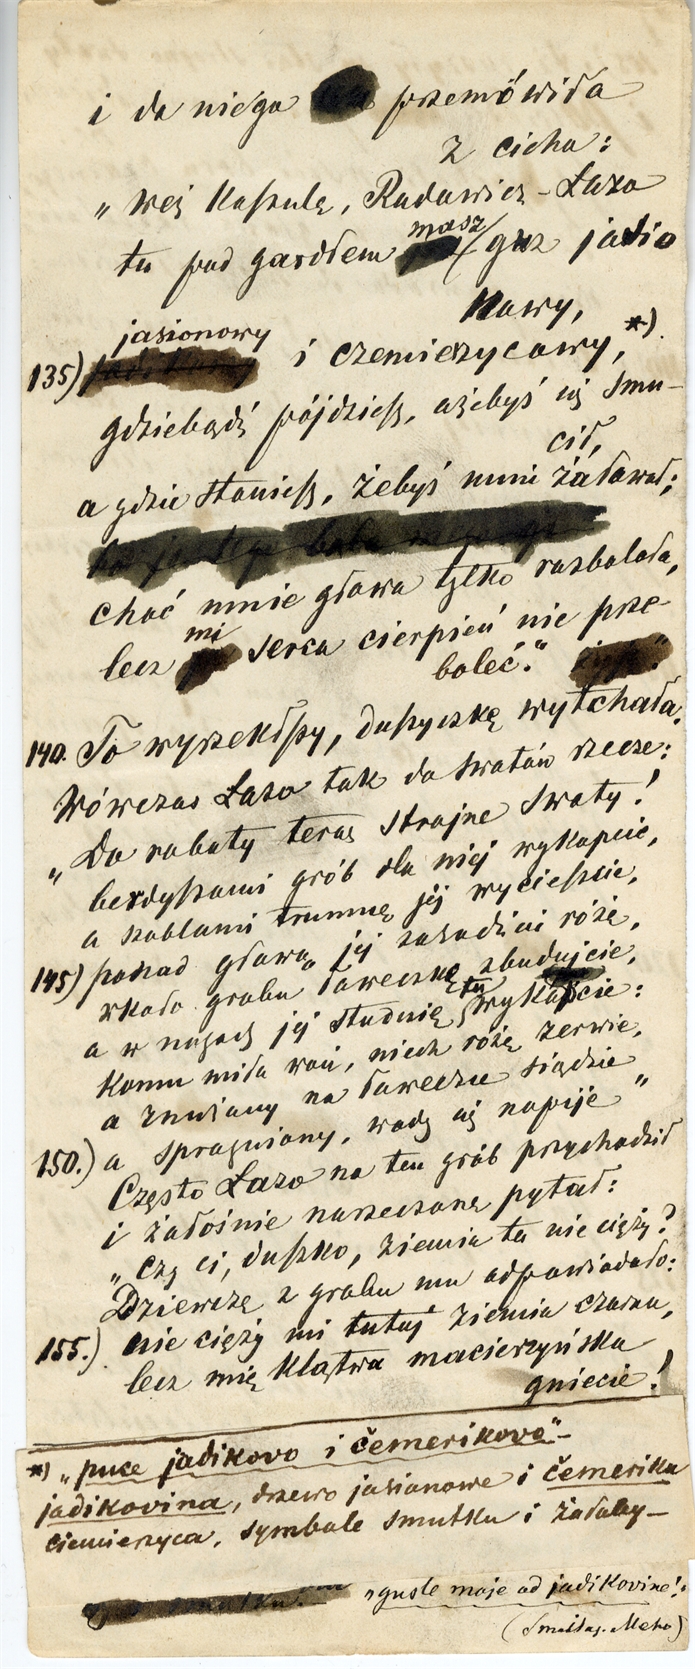 i do niego przemówiła
z cicha:
„weź koszulę, Radowicz-Łazo
tu pod gardłem masz guz jadio
kowy,
jasionowy
135) i czemierzycowy, *)
gdziebądź pójdziesz, ażebyś się smu-
cił,
a gdzie staniesz, żebyś mnie żałował;
choć mnie głowa tylko rozbolała,
lecz mi serca cierpień nie prze-
boleć."
140. To wyrzekłszy, duszyczkę wytchała.
Wówczas Łazo tak do swatów rzecze:
„Do roboty teraz strojne swaty!
berdyszami grób dla niej wykopcie,
a szablami trumnę jej wycieszcie,
145) ponad głową jej zasadźcie różę,
wkoło grobu ławeczkę zbudujcie,
a w nogach jej studnię tu wykopcie:
komu miła woń, niech różę zerwie,
a znużony na ławeczce siądzie
150.) a spragniony, wody się napije"
Często Łazo na ten grób przychodził
i żałośnie narzeczoną pytał:
„czy ci, duszko, ziemia ta nie cięży?
Dziewczę z grobu mu odpowiadało:
155.) nie cięży mi tutaj ziemia czarna,
lecz mię klątwa macierzyńska
gniecie!
*) „puce jadikovo i čemerikovo"-
jadikovina, drzewo jasionowe i čemerika
ciemierzyca, symbole smutku i żałoby-
„gusle moje od jadikovine!"